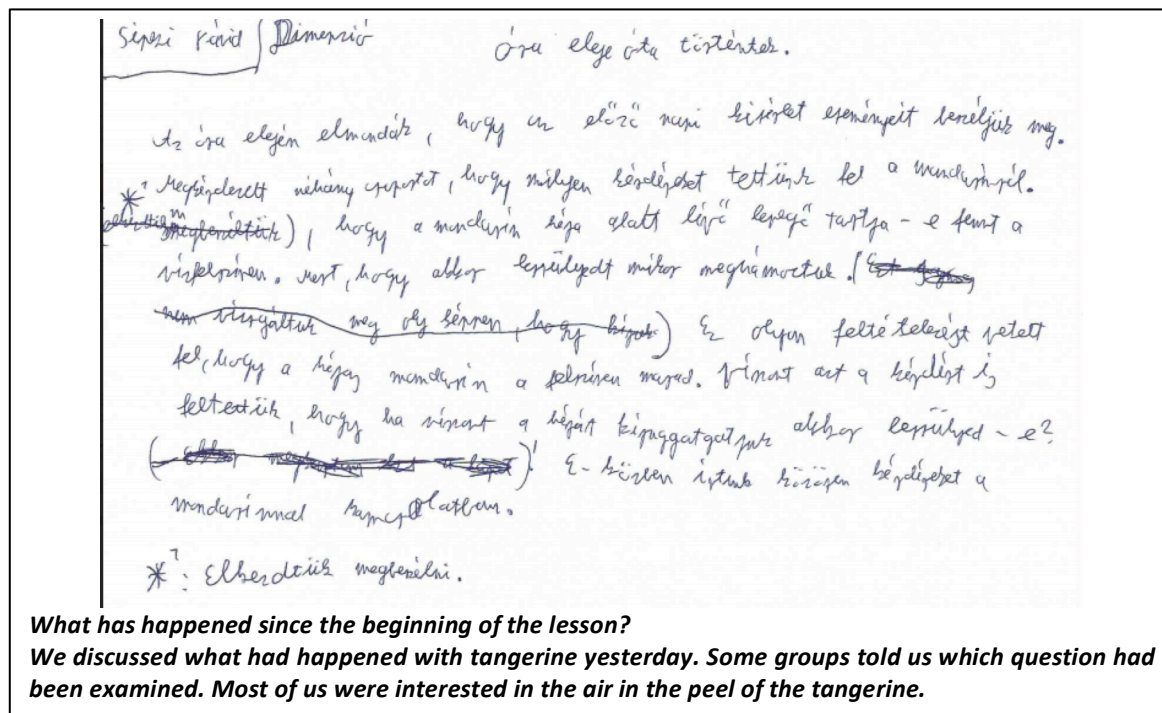 Dimenzió
óra eleje óta történtek.
Az óra elején elmondták, hogy az előző napi kisérlet eseményeit beszéljük meg.
*¹ Megkérdezett néhány csoportot, hogy milyen kérdéseket tettünk fel a mandarinról.
hogy a mandarin héja alatt lévő levegő tartja-e fennt a
vízfelszínen. Mert, hogy akkor lessüllyedt mikor meghámoztuk. (
nem vizsgáltuk meg oly képpen, hogy ) Ez olyan feltételezést vetett
fel, hogy a héjas mandarin a felszínen marad. Viszont azt a kérdést is
feltettük, hogy ha viszont a héját kiszuggatgatjuk akkor lessüllyed-e?
E-közben írtunk közösen kérdéseket a
mandarinnal kapcsolatban.
*¹: Elkezdtük megbeszélni.
What has happened since the beginning of the lesson?
We discussed what had happened with tangerine yesterday. Some groups told us which question had
been examined. Most of us were interested in the air in the peel of the tangerine.